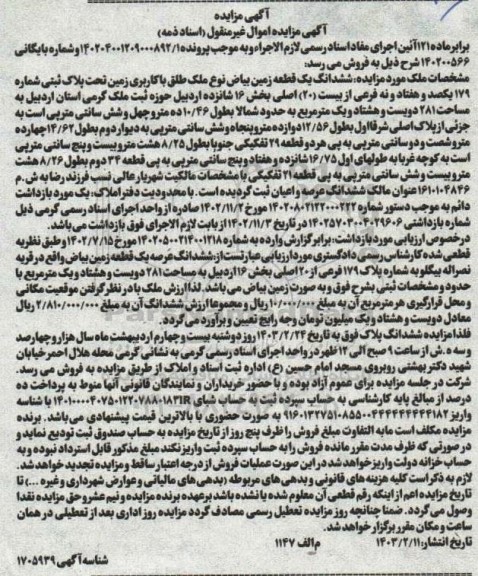 آگهی مزایده
آگهی مزایده اموال غیرمنقول (اسناد ذمه)
برابر ماده ۱۲۱ آئین اجرای مفاد اسناد رسمی لازم الاجراء و به موجب پرونده ۱۴۰۲۰۴۰۰۱۲۰۹۰۰۰۸۹۲/۱ و شماره بایگانی
۱۴۰۲۰۰۵۶۶ شرح ذیل به فروش می رسد:
مشخصات ملک مورد مزایده: ششدانگ یک قطعه زمین بیاض نوع ملک طلق با کاربری زمین تحت پلاک ثبتی شماره
۱۷۹ یکصد و هفتاد و نه فرعی از بیست (۲۰) اصلی بخش ۱۶ شانزده اردبیل حوزه ثبت ملک گرمی استان اردبیل به
مساحت ۲۸۱ دویست و هشتاد و یک مترمربع به حدود شمالا بطول ۱۰/۴۶ ده متر و چهل و شش سانتی متر پی است به
جزئی از پلاک اصلی شرقا اول بطول ۱۲/۵۶ دوازده متر و پنجاه و شش سانتی متر پی به دیوار دوم بطول ۱۴/۶۲ چهارده
متر و شصت و دو سانتی متر پی به پی هر دو قطعه ۲۹ تفکیکی جنوبا بطول ۸/۲۵ هشت متر و بیست و پنج سانتی متر پی
است به کوچه غربا به طولهای اول ۱۶/۷۵ شانزده و هفتاد و پنج سانتی متر پی به پی قطعه ۳۴ دوم بطول ۸/۲۶ هشت
متر و بیست و شش سانتی متر پی به پی قطعه ۲۱ تفکیکی با مشخصات مالکیت شهریار عالی نسب فرزند رضا به ش.م
۱۶۱۰۱۰۴۸۴۶ عنوان مالک ششدانگ عرصه و اعیان ثبت گردیده است. با محدودیت دفتر املاک: یک مورد بازداشت
دائم به موجب دستور شماره ۱۴۰۲۰۸۰۲۱۲۲۰۰۰۲۲۲ مورخ ۱۴۰۲/۱۱/۲ صادره از واحد اجرای اسناد رسمی گرمی ذیل
شماره بازداشتی ۱۴۰۲۵۷۰۳۰۰۴۰۲۹۶۰۶ در تاریخ ۱۴۰۲/۱۱/۳ از بابت لازم الاجرای فوق بازداشت می باشد.
در خصوص ارزیابی مورد بازداشت: برابر گزارش وارده به شماره ۱۴۰۲۰۵۰۰۲۱۴۰۰۱۳۱۸ مورخ ۱۴۰۲/۷/۱۵ و طبق نظریه
قطعی شده کارشناس رسمی دادگستری مورد ارزیابی عبارتست از: ششدانگ عرصه یک قطعه زمین بیاض واقع در قریه
نصراله بیگلو به شماره پلاک ۱۷۹ فرعی از ۲۰ اصلی بخش ۱۶ اردبیل به مساحت ۲۸۱ دویست و هشتاد و یک مترمربع با
حدود و مشخصات ثبتی بشرح فوق و به صورت زمین بیاض می باشد. لذا ارزش ملک با در نظر گرفتن موقعیت مکانی
و محل قرارگیری هر مترمربع آن به مبلغ ۱۰/۰۰۰/۰۰۰ ریال و مجموعا ارزش ششدانگ آن به مبلغ ۲/۸۱۰/۰۰۰/۰۰۰ ریال
معادل دویست و هشتاد و یک میلیون تومان وجه رایج تعیین و برآورد می گردد.
فلذا مزایده ششدانگ پلاک فوق به تاریخ ۱۴۰۳/۲/۲۴ روز دوشنبه بیست و چهارم اردیبهشت ماه سال هزار و چهارصد
و سه ه.ش از ساعت ۹ صبح الی ۱۲ ظهر در واحد اجرای اسناد رسمی گرمی به نشانی گرمی محله هلال احمر خیابان
شهید دکتر بهشتی روبروی مسجد امام حسین (ع) اداره ثبت اسناد و املاک از طریق مزایده به فروش می رسد.
شرکت در جلسه مزایده برای عموم آزاد بوده و با حضور خریداران و نمایندگان قانونی آنها منوط به پرداخت ده
درصد از مبالغ پایه کارشناسی به حساب سپرده ثبت به حساب شبای IR با شناسه
واریز به صورت حضوری با بالاترین قیمت پیشنهادی می باشد. برنده
مزایده مکلف است مابه التفاوت مبلغ فروش را ظرف پنج روز از تاریخ مزایده به حساب صندوق ثبت تودیع نماید و
در صورتی که ظرف مدت مقرر مانده فروش را به حساب سپرده ثبت واریز نکند مبلغ مذکور قابل استرداد نبوده و به
حساب خزانه دولت واریز خواهد شد در این صورت عملیات فروش از درجه اعتبار ساقط و مزایده تجدید خواهد شد.
لازم به ذکر است کلیه هزینه های قانونی و بدهی های مربوطه (بدهی های مالیاتی و عوارض شهرداری و غیره ...) تا
تاریخ مزایده اعم از اینکه رقم قطعی آن معلوم شده یا نشده باشد برعهده برنده مزایده و نیم عشر و حق مزایده نقدا
وصول می گردد. ضمنا چنانچه روز مزایده تعطیل رسمی مصادف گردد مزایده روز اداری بعد از تعطیلی در همان
ساعت و مکان مقرر برگزار خواهد شد.
تاریخ انتشار: ۱۴۰۳/۲/۱۱ م الف ۱۱۴۷
شناسه آگهی ۱۷۰۵۹۳۹